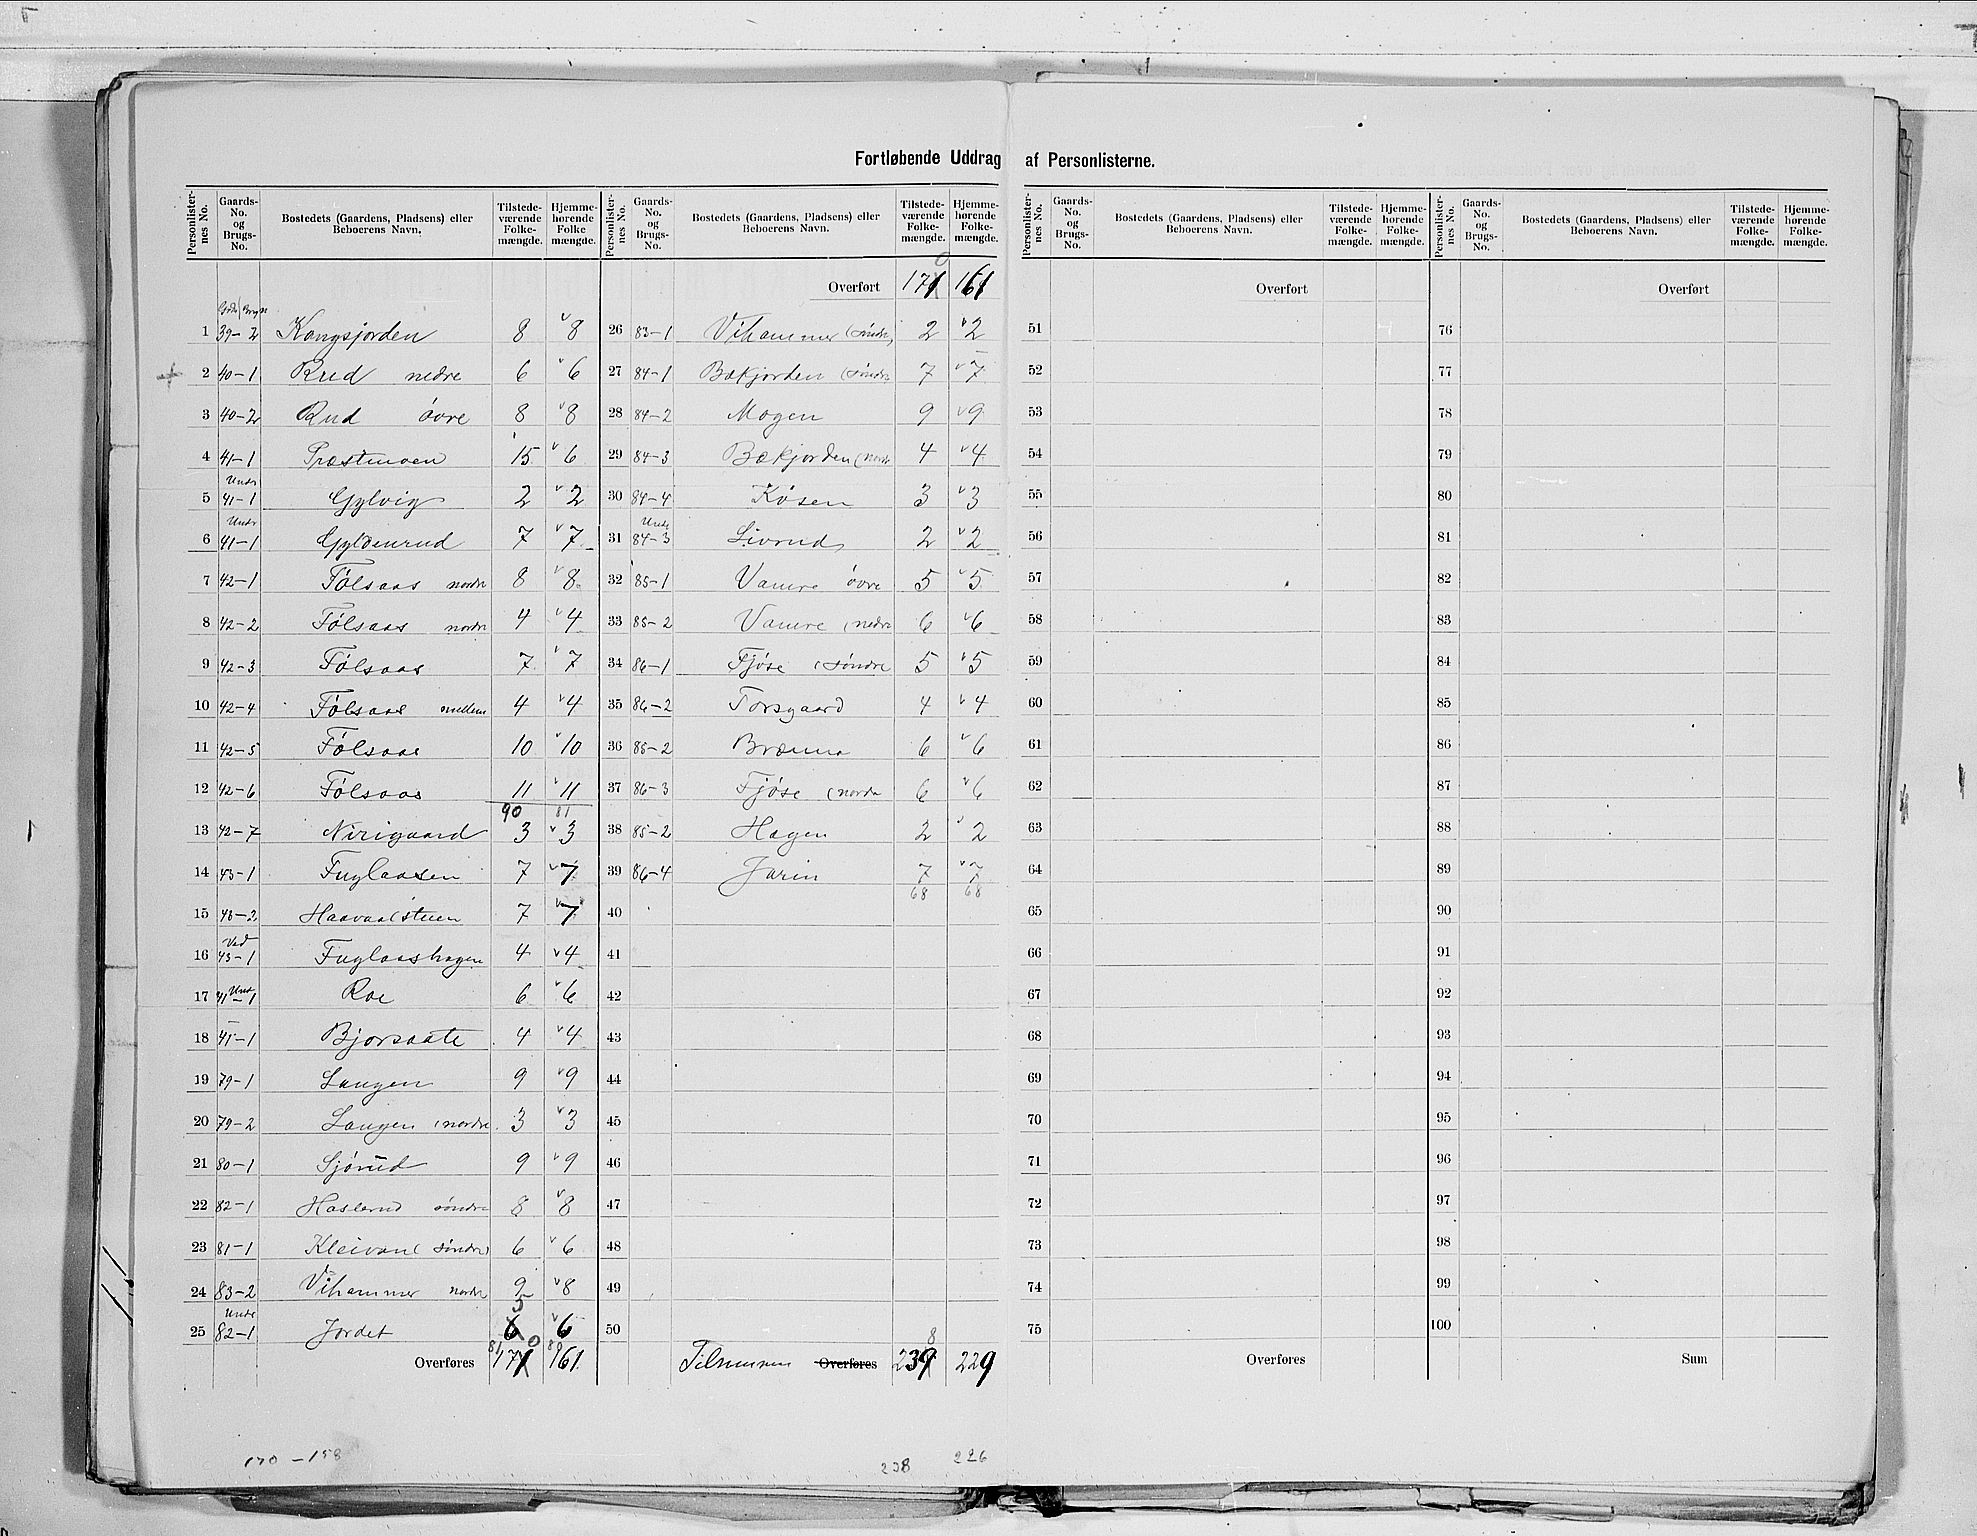 Fortløbende Uddrag af Personlisterne.
Personlister-nes No. | Gaards-No. og Brugs-No. | Bostedets (Gaardens, Pladsens) eller Beboerens Navn. | Tilstede-værende Folke-mængde. | Hjemme-hørende Folke mængde.
Personlister-nes No. | Gaards-No. og Brugs-No. | Bostedets (Gaardens, Pladsens) eller Beboerens Navn. | Tilstede-værende Folke-mængde. | Hjemme-hørende Folke-mængde.
1 39-2 Kongsjorden 8 8
2 40-1 Rud nedre 6 6
3 40-2 Rud øvre 8 8
4 41-1 Præstmoen 15 6
5 Under 41-1 Gylvig 2 2
6 Under 41-1 Gyldenrud 7 7
7 42-1 Følsaas nordre 8 8
8 42-2 Følsaas nordre 4 4
9 42-3 Følsaas 7 7
10 42-4 Følsaas mellem 4 4
11 42-5 Følsaas 10 10
12 42-6 Følsaas 11 11
90 81
13 42-7 Nirigaard 3 3
14 43-1 Fuglaasen 7 7
15 43-2 Haavaalstuen 7 7
16 43-1 Fuglaashagen 4 4
17 41-1 Roe 6 6
18 45-1 Bjorsaate 4 4
19 79-1 Langen 9 9
20 79-2 Langen (nordre 3 3
21 80-1 Sjørud 9 9
22 82-1 Haslerud søndre 8 8
23 81-1 Kleivan (søndre) 6 6
24 83-2 Vihammer nordre 9 8
25 Under 82-1 Jordet 6 5 6
Overføres 171 0 161
81 80
Overført 171 0 161
26 83-1 Vihammer (søndre) 2 2
27 84-1 Bækjorden (søndre 7 7
28 84-2 Mogen 9 9
29 84-3 Bækjorden (nordr 4 4
30 84-4 Kosen 3 3
31 Under 84-3 Livrud 2 2
32 85-1 Vamre øvre 5 5
33 85-2 Vamre (nedre 6 6
34 86-1 Fjøse (søndre 5 5
35 86-2 Torsgaard 4 4
36 85-2 Brænna 6 6
37 86-3 Fjøse (nordre 6 6
38 85-2 Hagen 2 2
39 86-4 Jarin 7 7
68 68
40
41
42
43
44
45
46
47
48
49
50
Tilsammen Overføres 239 8 229
Personlister-nes No. | Gaards-No. og Brugs-No. | Bostedets (Gaardens, Pladsens) eller Beboerens Navn. | Tilstede-værende Folke-mængde. | Hjemme-hørende Folke-mængde.
Overført
51
52
53
54
55
56
57
58
59
60
61
62
63
64
65
66
67
68
69
70
71
72
73
74
75
Overføres
Personlister-nes No. | Gaards-No. og Brugs-No. | Bostedets (Gaardens, Pladsens) eller Beboerens Navn. | Tilstede-værende Folke-mængde. | Hjemme-hørende Folke-mængde.
Overført
76
77
78
79
80
81
82
83
84
85
86
87
88
89
90
91
92
93
94
95
96
97
98
99
100
Sum
170 - 158
238 226